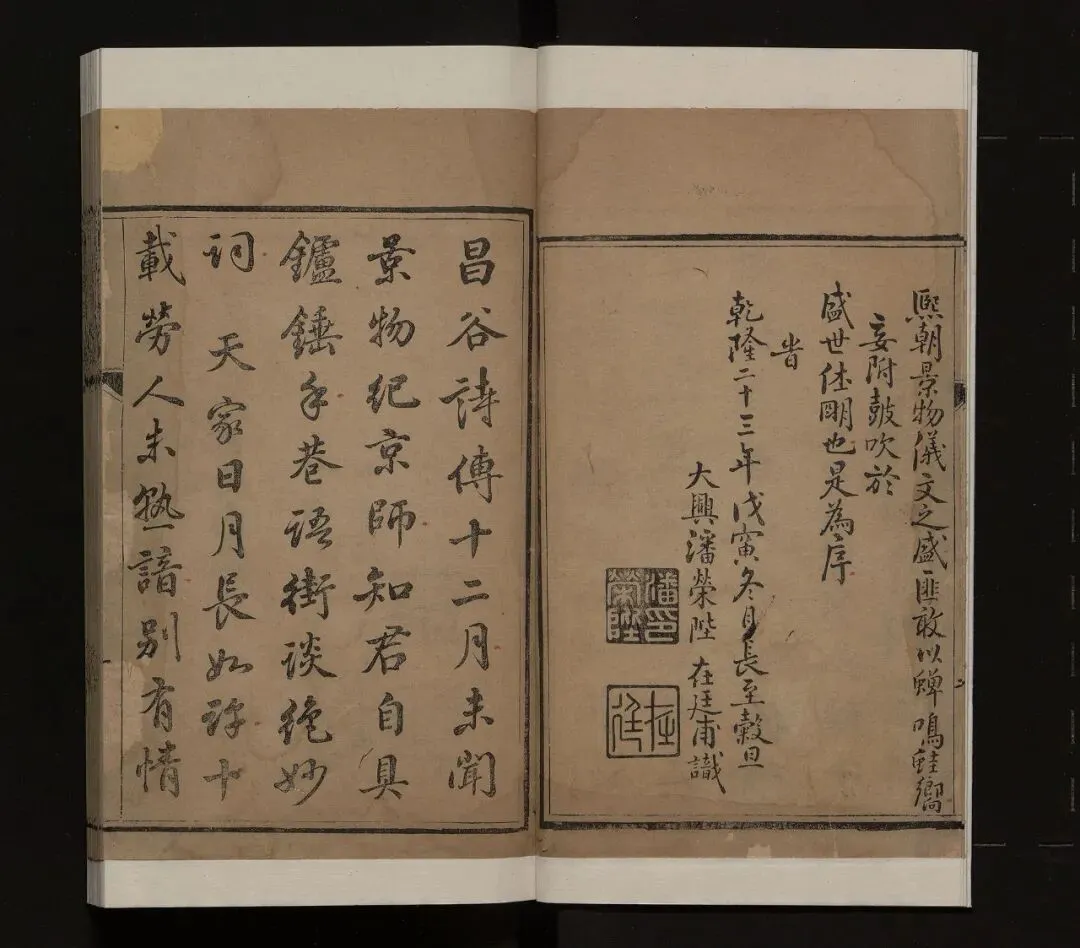 熈朝景物儀文之盛匪敢以蟬鳴鮭嚮
妄附鼓吹於
盛世休明也是為序
旹
乾隆二十三年戊寅冬月長至穀旦
大興潘榮陛在廷甫識
潘印榮陛
在廷
昌谷詩傳十二月未聞
景物紀京師知君自具
鑪錘手巷語街談絶妙
詞 天家日月長如許十
載勞人未熟諳別有情